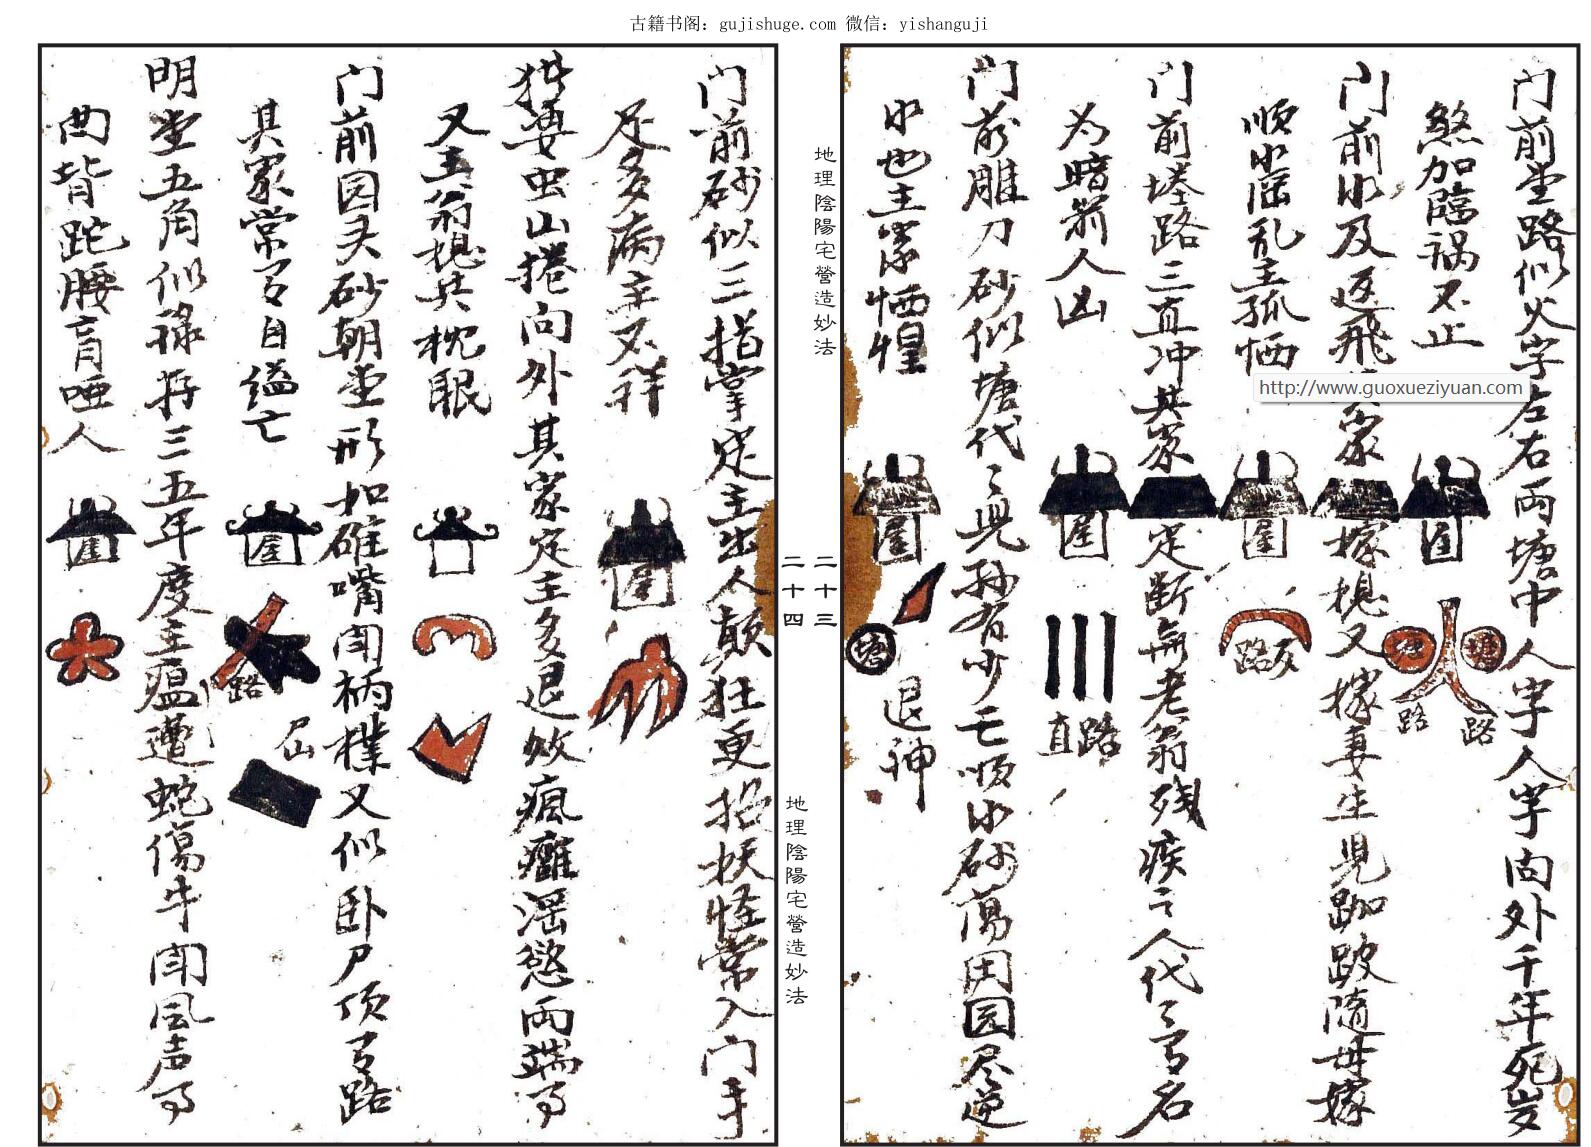 古籍书阁：gujishuge.com 微信：yishanguji
门前堂路似火字左右両塘中人字入字向外千年死岁
煞加臨禍不止
门前水及返飛 家 嫁媳又嫁妻生児跏跛隨母嫁
順水滛乱主孤恓
门前塔路三直冲其家 定断無老翁残疾之人代〻有名
为暗箭人凶
门前雕刀砂似塘代〻児孙有少亡順水砂蕩田园尽逆
水也主家恓惶
http://www.guoxueziyuan.com
屋
屋
屋
屋
塘
塘
路
路
路
直路
塘
退神
地理陰陽宅營造妙法
二十三
二十四
地理陰陽宅營造妙法
门前砂似三指掌定主出人颠狂更招妖怪常入门手
足多病主不祥
山捲向外其家定主多退敗瘋癱滛慾両端
又主翁媳共枕眠
门前园头砂朝堂形如碓嘴 柄樸又似卧尸顶有路
其家常有自縊亡
明堂五角似禄存三五年度主瘟遭蛇傷牛 風声
曲背跎腰盲啞人
屋
屋
屋
路
尸山